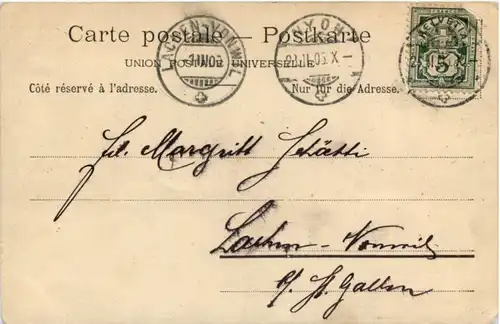 Carte postale — Postkarte
UNION POSTALE UNIVERSELLE
Côté réservé à l'adresse.
Nur für die Adresse.
LACHEN-VONWIL
NYON
HELVETIA
5
Margritt
Lachen-Vonwil
St. Gallen